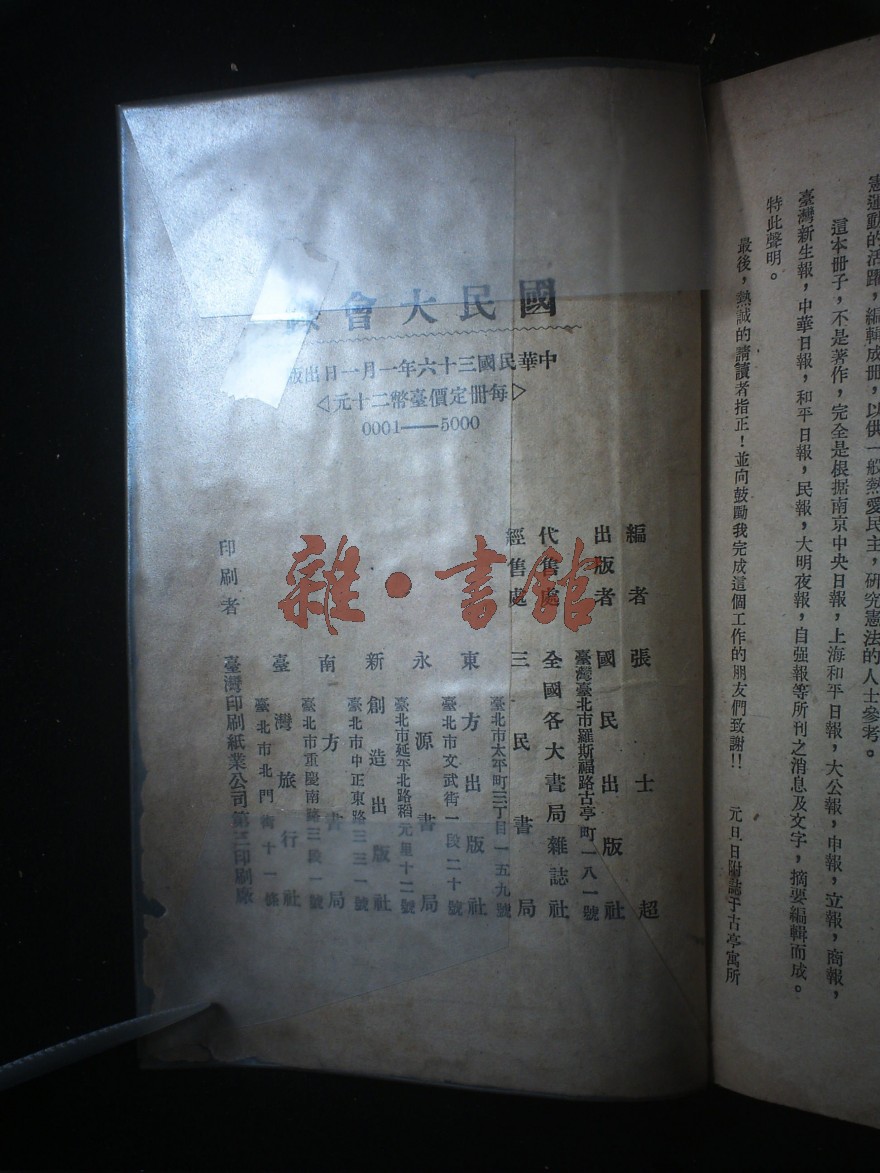 憲運動的活躍，編輯成冊，以供一般熱愛民主，研究憲法的人士參考。
這本冊子，不是著作，完全是根据南京中央日報，上海和平日報，大公報，申報，立報，商報，
臺灣新生報，中華日報，和平日報，民報，大明夜報，自强報等所刊之消息及文字，摘要編輯而成。
特此聲明。
最後，熱誠的請讀者指正！並向鼓勵我完成這個工作的朋友們致謝!!　元旦日附誌于古亭寓所
國民大會
中華民國三十六年一月一日出版
◁每冊定價臺幣二十元▷
0001——5000
編者　張士超
出版者　國民出版社
臺灣臺北市羅斯福路古亭町一八一號
代售處　全國各大書局雜誌社
經售處　三民書局
臺北市太平町三丁目一五九號
東方出版社
臺北市文武街一段二十號
永源書局
臺北市延平北路稻元里十二號
新創造出版社
臺北市中正東路三三一號
南方書局
臺北市重慶南路三段一號
臺灣旅行社
臺北市北門街十一號
印刷者　臺灣印刷紙業公司第三印刷廠
雜·書館